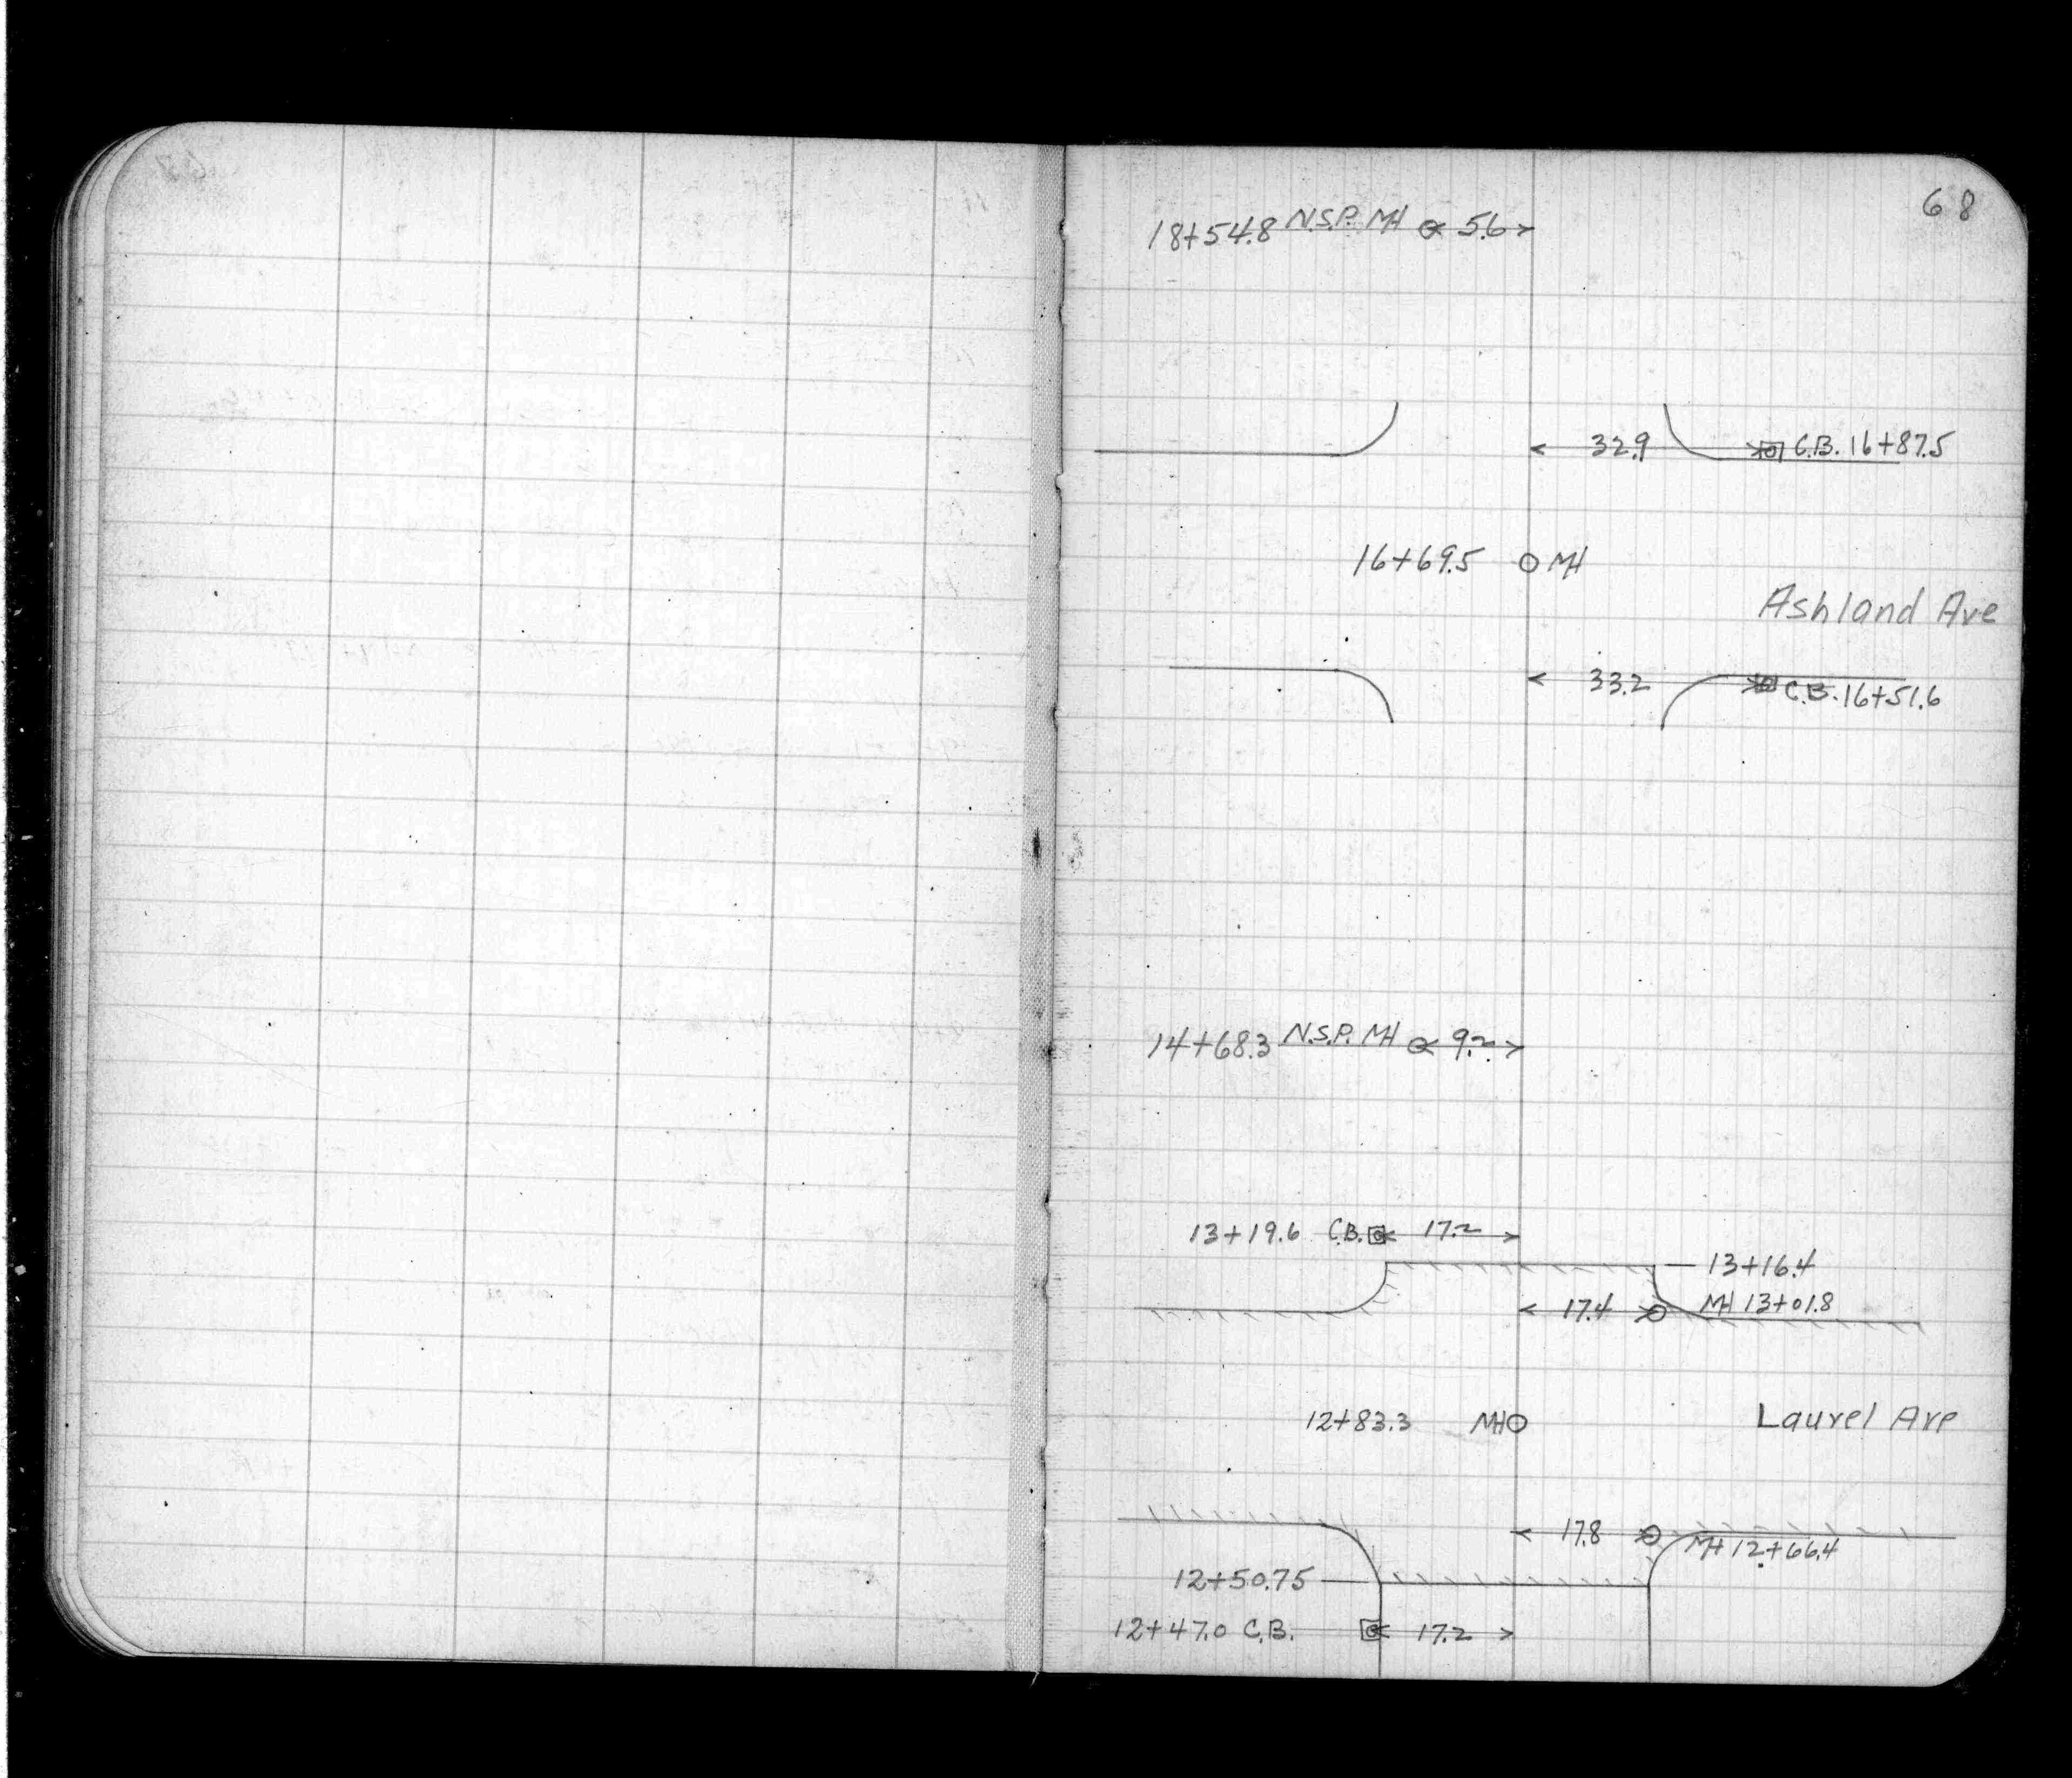 68
18+54.8 N.S.P. MH 5.6
32.9 C.B. 16+87.5
16+69.5 MH
Ashland Ave
33.2 C.B. 16+51.6
14+68.3 N.S.P. MH 9.2
13+19.6 C.B. 17.2
13+16.4
17.4 MH 13+01.8
12+83.3 MH Laurel Ave
17.8 MH 12+66.4
12+50.75
12+47.0 C.B. 17.2